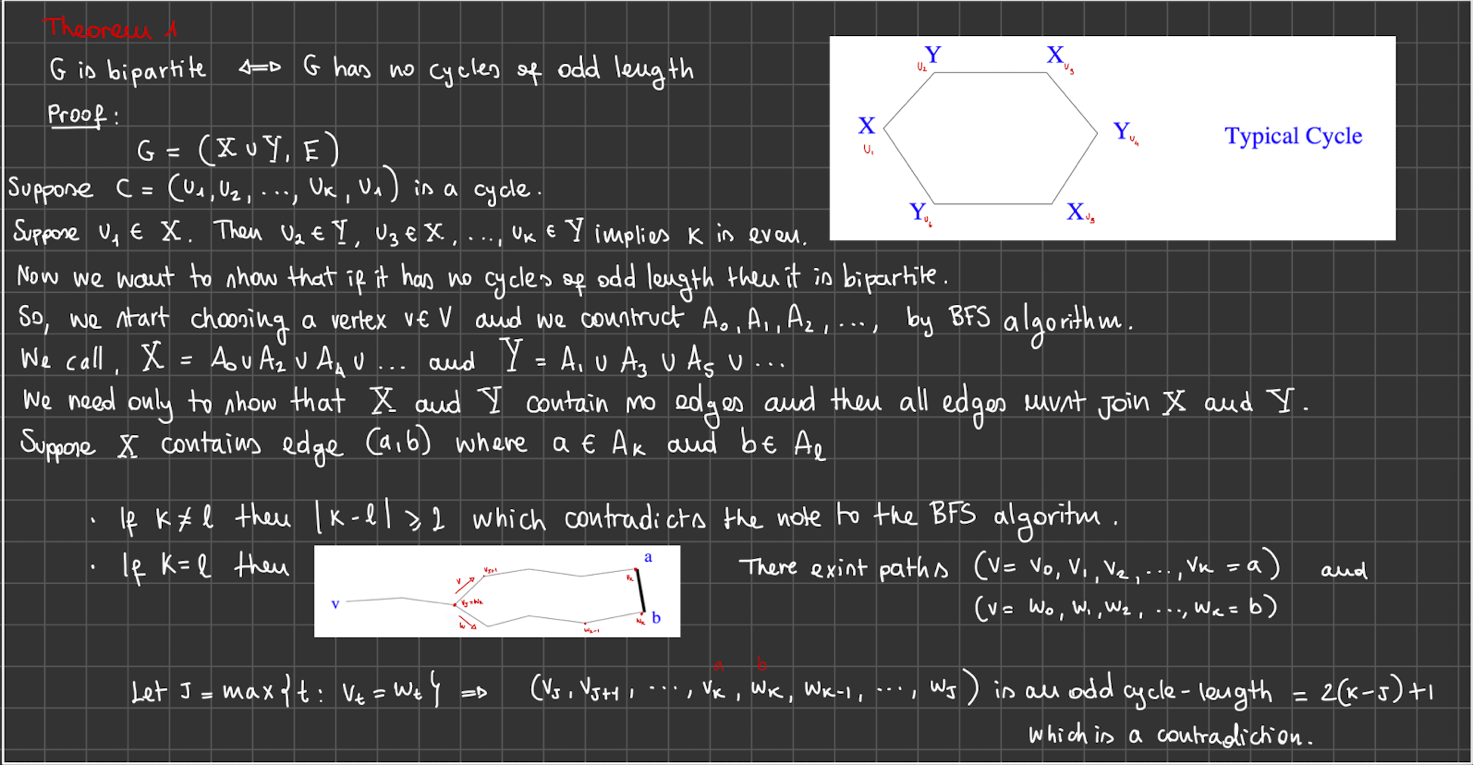 Theorem 1
G is bipartite ⇔ G has no cycles of odd length
Proof:
G = (X ∪ Y, E)
Suppose C = (u₁, u₂, ..., uₖ, u₁) is a cycle.
Suppose u₁ ∈ X. Then u₂ ∈ Y, u₃ ∈ X, ..., uₖ ∈ Y implies k is even.
Y u₂
X u₃
X u₁
Y u₄
Typical Cycle
Y
X
Now we want to show that if it has no cycles of odd length then it is bipartite.
So, we start choosing a vertex v ∈ V and we construct A₀, A₁, A₂, ..., by BFS algorithm.
We call, X = A₀ ∪ A₂ ∪ A₄ ∪ ... and Y = A₁ ∪ A₃ ∪ A₅ ∪ ...
We need only to show that X and Y contain no edges and then all edges must join X and Y.
Suppose X contains edge (a,b) where a ∈ Aₖ and b ∈ Aₗ
· If k ≠ l then |k-l| ⩾ 2 which contradicts the note to the BFS algoritm.
· If k = l then
v
v
vⱼ₊₁
vⱼ=wⱼ
w
vₖ
a
wₖ₋₁
wₖ
b
There exist paths (v = v₀, v₁, v₂, ..., vₖ = a) and
(v = w₀, w₁, w₂, ..., wₖ = b)
a b
Let J = max{t : vₜ = wₜ} ⇒ (vⱼ, vⱼ₊₁, ..., vₖ, wₖ, wₖ₋₁, ..., wⱼ) is an odd cycle-length = 2(k-J)+1
which is a contradiction.